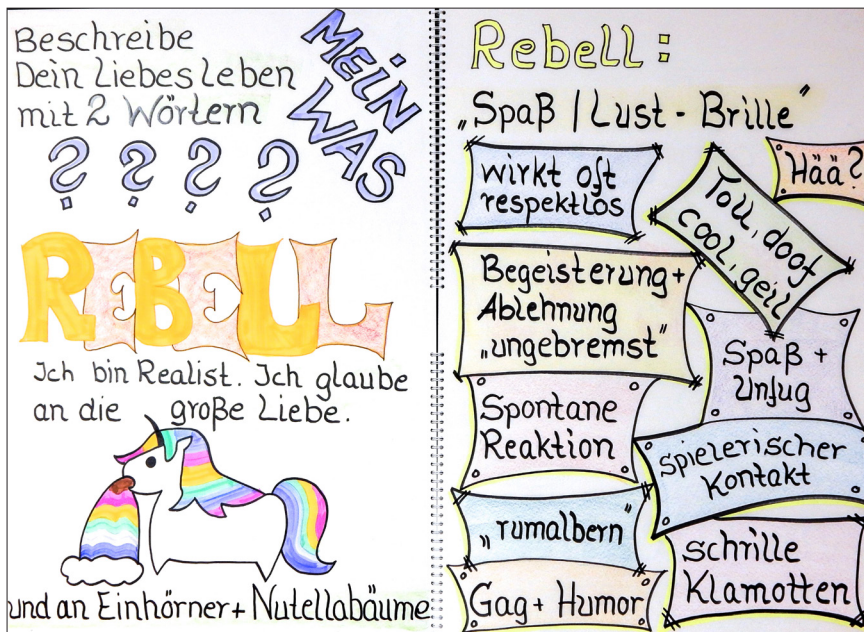 Beschreibe
Dein Liebesleben
mit 2 Wörtern
MEiN
WAS
? ? ? ?
REBELL
Ich bin Realist. Ich glaube
an die große Liebe.
und an Einhörner + Nutellabäume
Rebell:
„Spaß / Lust - Brille"
wirkt oft
respektlos
Toll, doof
cool, geil
Hää?
Begeisterung +
Ablehnung
„ungebremst"
Spaß +
Unfug
Spontane
Reaktion
spielerischer
Kontakt
„rumalbern"
schrille
Klamotten
Gag + Humor